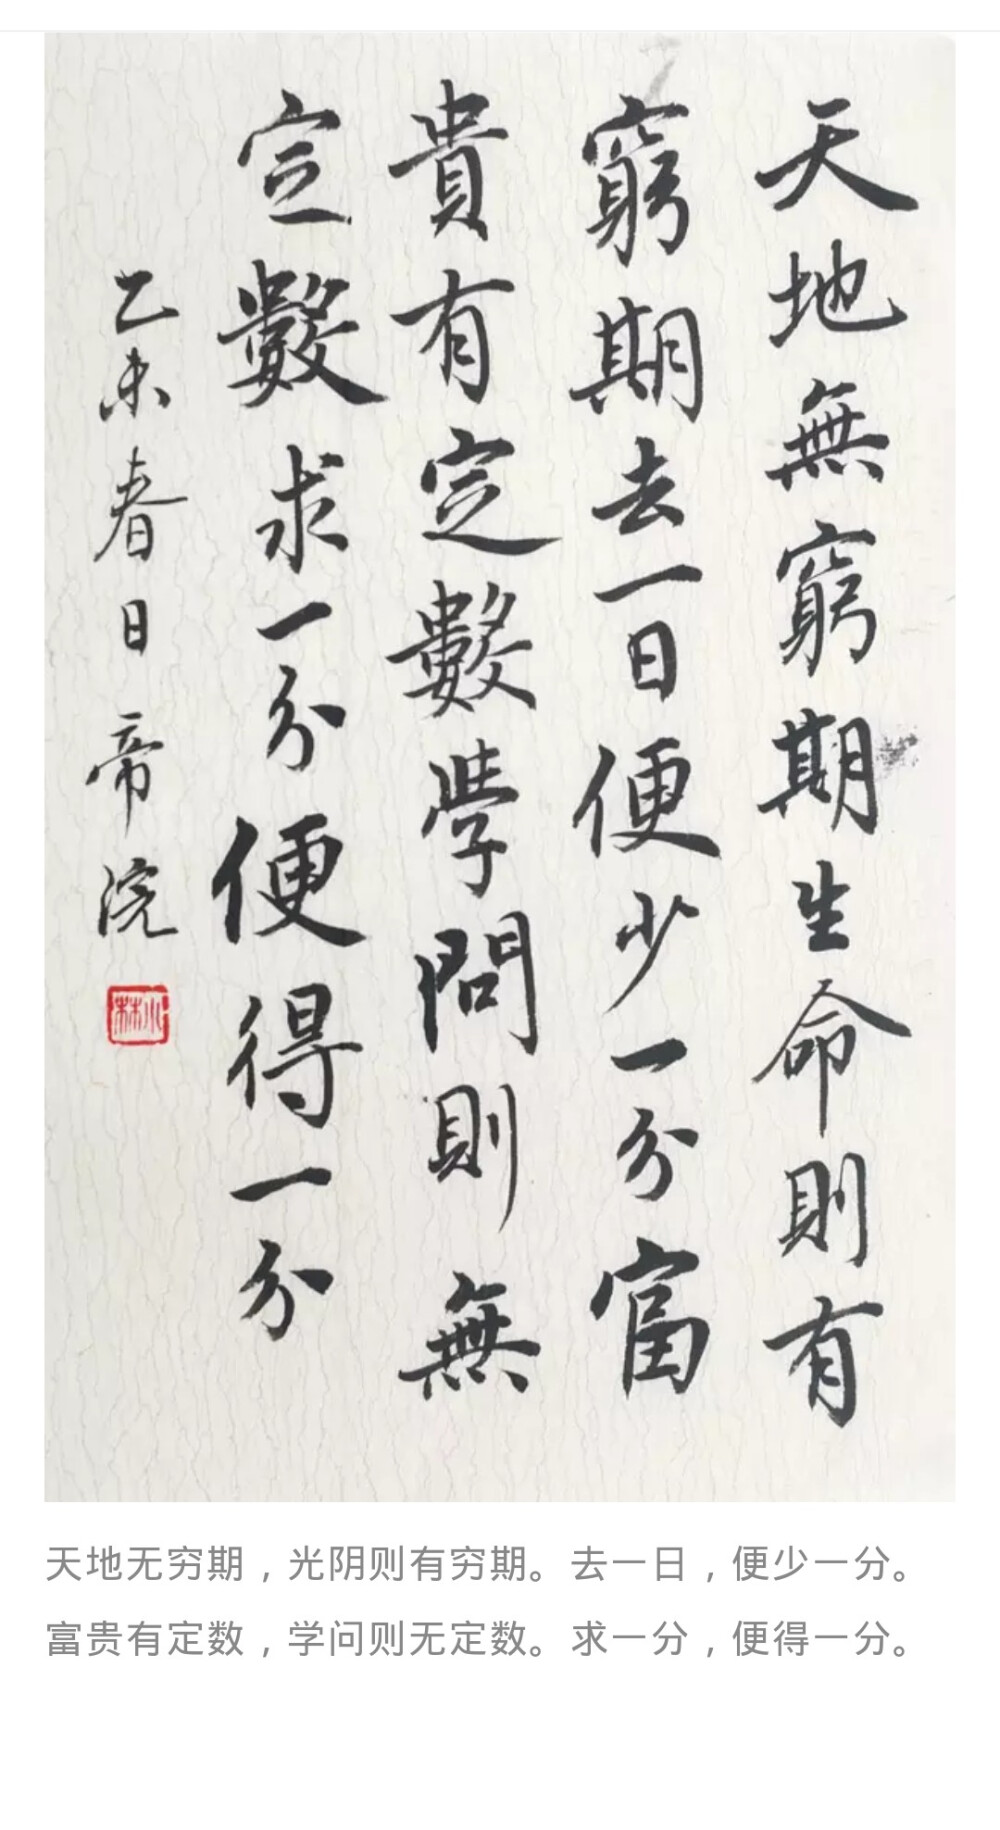 天地無窮期生命則有
窮期去一日便少一分富
貴有定數學問則無
定數求一分便得一分
乙未春日帝浣
天地无穷期，光阴则有穷期。去一日，便少一分。
富贵有定数，学问则无定数。求一分，便得一分。